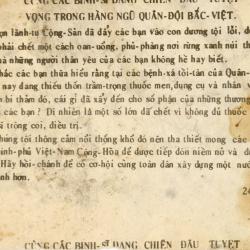 CÙNG CÁC BINH-SĨ ĐANG CHIẾN ĐẤU TUYỆT
VỌNG TRONG HÀNG NGŨ QUÂN-ĐỘI BẮC-VIỆT.
ọn lãnh-tụ Cộng-Sản đã đẩy các bạn vào con đương tội lỗi, đó
phải chết một cách oan-uổng, phũ-phàng nơi rừng xanh núi th
à những người thân yêu của các bạn không hề hay biết.
hắc các bạn thừa hiểu rằng tại các bệnh-xá tồi-tàn của Quân-
này đang thiếu thốn trầm-trọng thuốc men, dụng cụ và nhân
bi thảm đó, cái gì đã xẩy đến cho số phận của những thương
các bạn ? Dĩ nhiên là một số lớn đã chết vì không đủ thuốc
i trông coi, điều trị.
húng tôi thông cảm nổi thống khổ đó nên tha thiết mong các
hính-phủ Việt-Nam Cộng-Hòa để được tiếp đón niềm nở và đ
Hãy hồi-chánh để có cơ-hội cùng toàn dân xây dựng một nướ
ịnh hơn.
24
CÙNG CÁC BINH-SĨ ĐANG CHIẾN ĐẤU TUYỆT